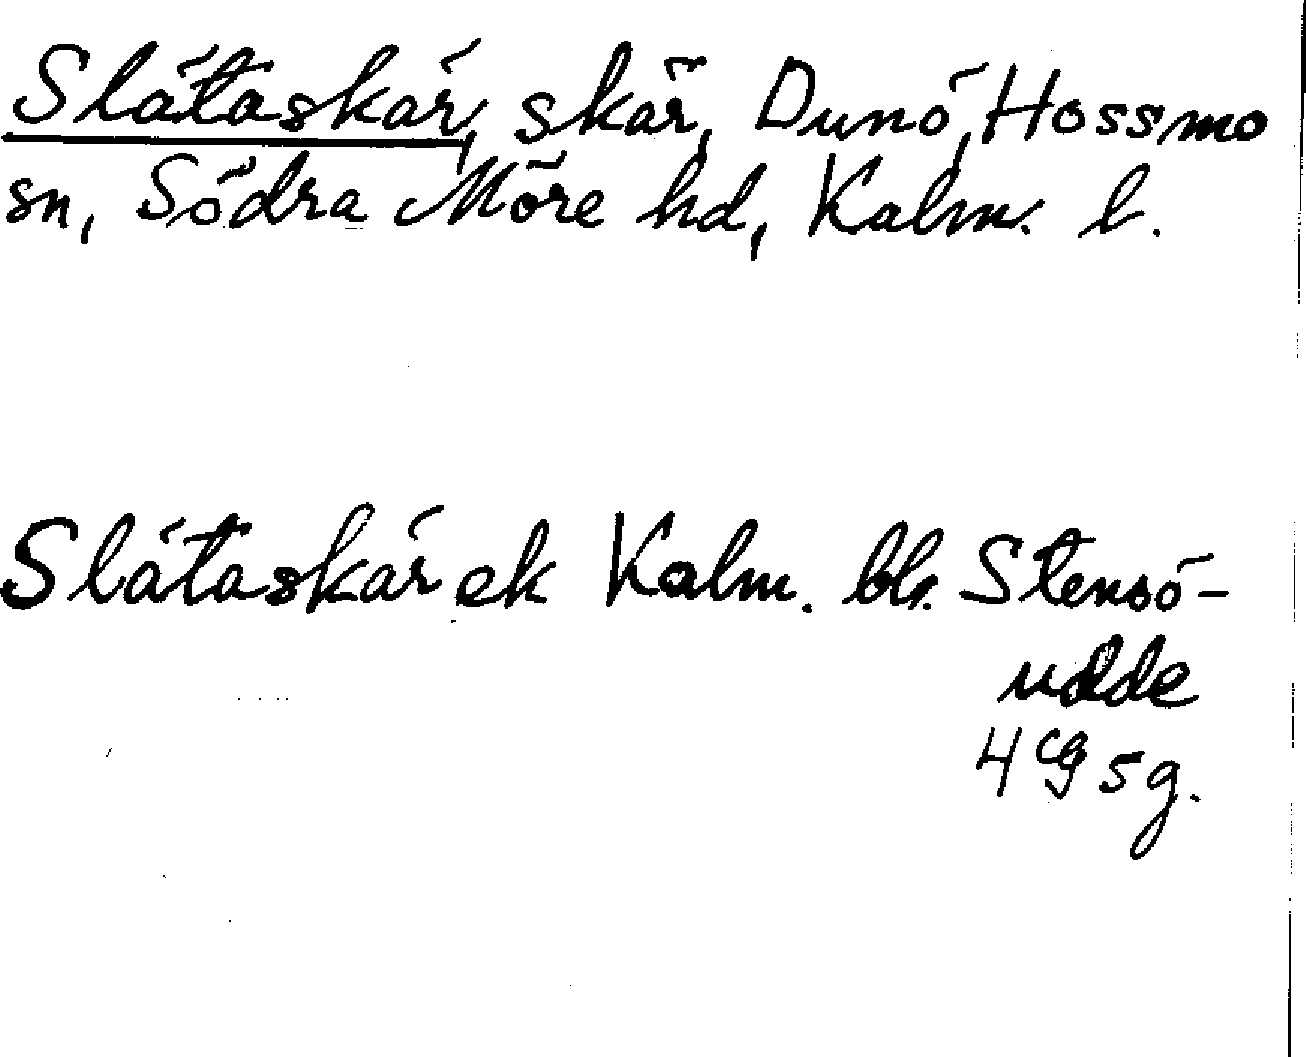 Slätaskär, skär, Dunö, Hossmo
sn, Södra Möre hd, Kalm. l.
Slätaskär ek Kalm. bl. Stensö-
udde
4 cg 5 g.